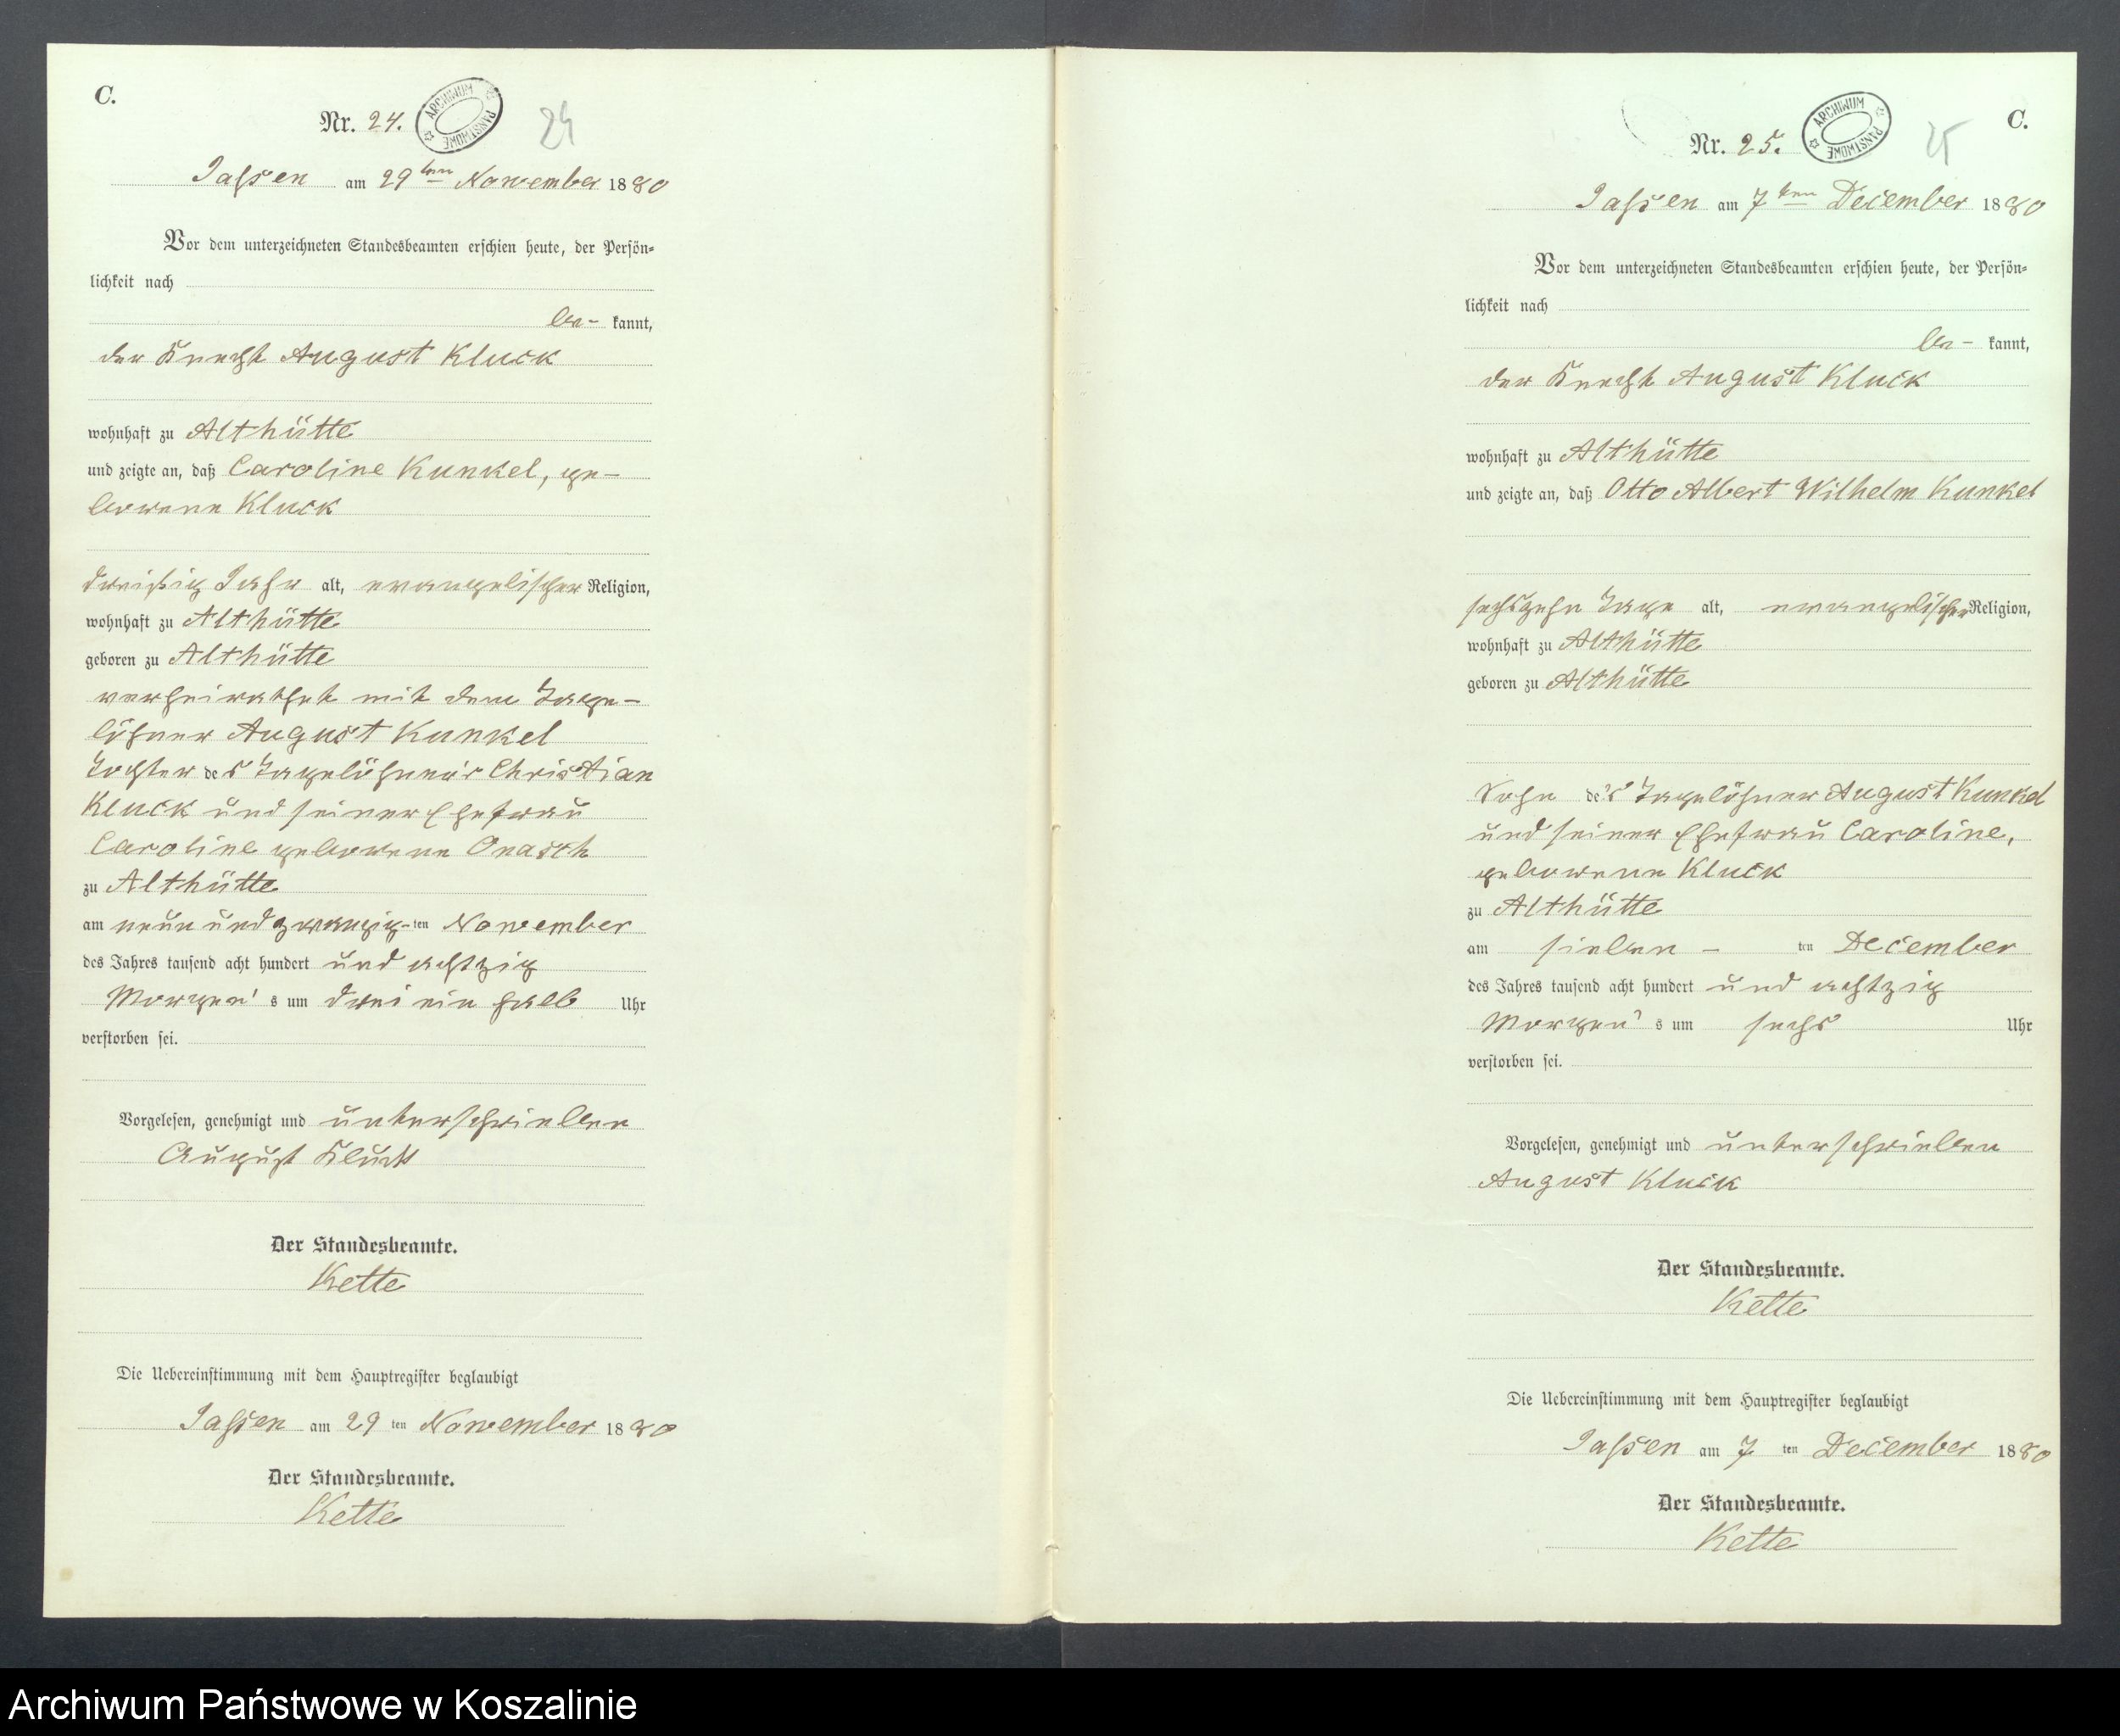 C.
Nr. 24.
ARCHIWUM PAŃSTWOWE
24
Jassen am 29ten November 1880
Vor dem unterzeichneten Standesbeamten erschien heute, der Persön-
lichkeit nach
be- kannt,
der Knecht August Kluck
wohnhaft zu Althütte
und zeigte an, daß Caroline Kunkel, ge-
borene Kluck
dreißig Jahr alt, evangelischer Religion,
wohnhaft zu Althütte
geboren zu Althütte
verheirathet mit dem Tage-
löhner August Kunkel
Tochter des Tagelöhner's Christian
Kluck und seiner Ehefrau
Caroline geborene Onasch
zu Althütte
am neun und zwanzig-ten November
des Jahres tausend acht hundert und achtzig
Morgen's um drei ein halb Uhr
verstorben sei.
Vorgelesen, genehmigt und unterschrieben
August Kluck
Der Standesbeamte.
Kette
Die Uebereinstimmung mit dem Hauptregister beglaubigt
Jassen am 29 ten November 1880
Der Standesbeamte.
Kette
C.
Nr. 25.
ARCHIWUM PAŃSTWOWE
25
Jassen am 7ten December 1880
Vor dem unterzeichneten Standesbeamten erschien heute, der Persön-
lichkeit nach
be- kannt,
der Knecht August Kluck
wohnhaft zu Althütte
und zeigte an, daß Otto Albert Wilhelm Kunkel
sechszehn Tage alt, evangelischer Religion,
wohnhaft zu Althütte
geboren zu Althütte
Sohn de's Tagelöhner August Kunkel
und seiner Ehefrau Caroline,
geborene Kluck
zu Althütte
am sieben - ten December
des Jahres tausend acht hundert und achtzig
Morgen's um sechs Uhr
verstorben sei.
Vorgelesen, genehmigt und unterschrieben
August Kluck
Der Standesbeamte.
Kette
Die Uebereinstimmung mit dem Hauptregister beglaubigt
Jassen am 7 ten December 1880
Der Standesbeamte.
Kette
Archiwum Państwowe w Koszalinie